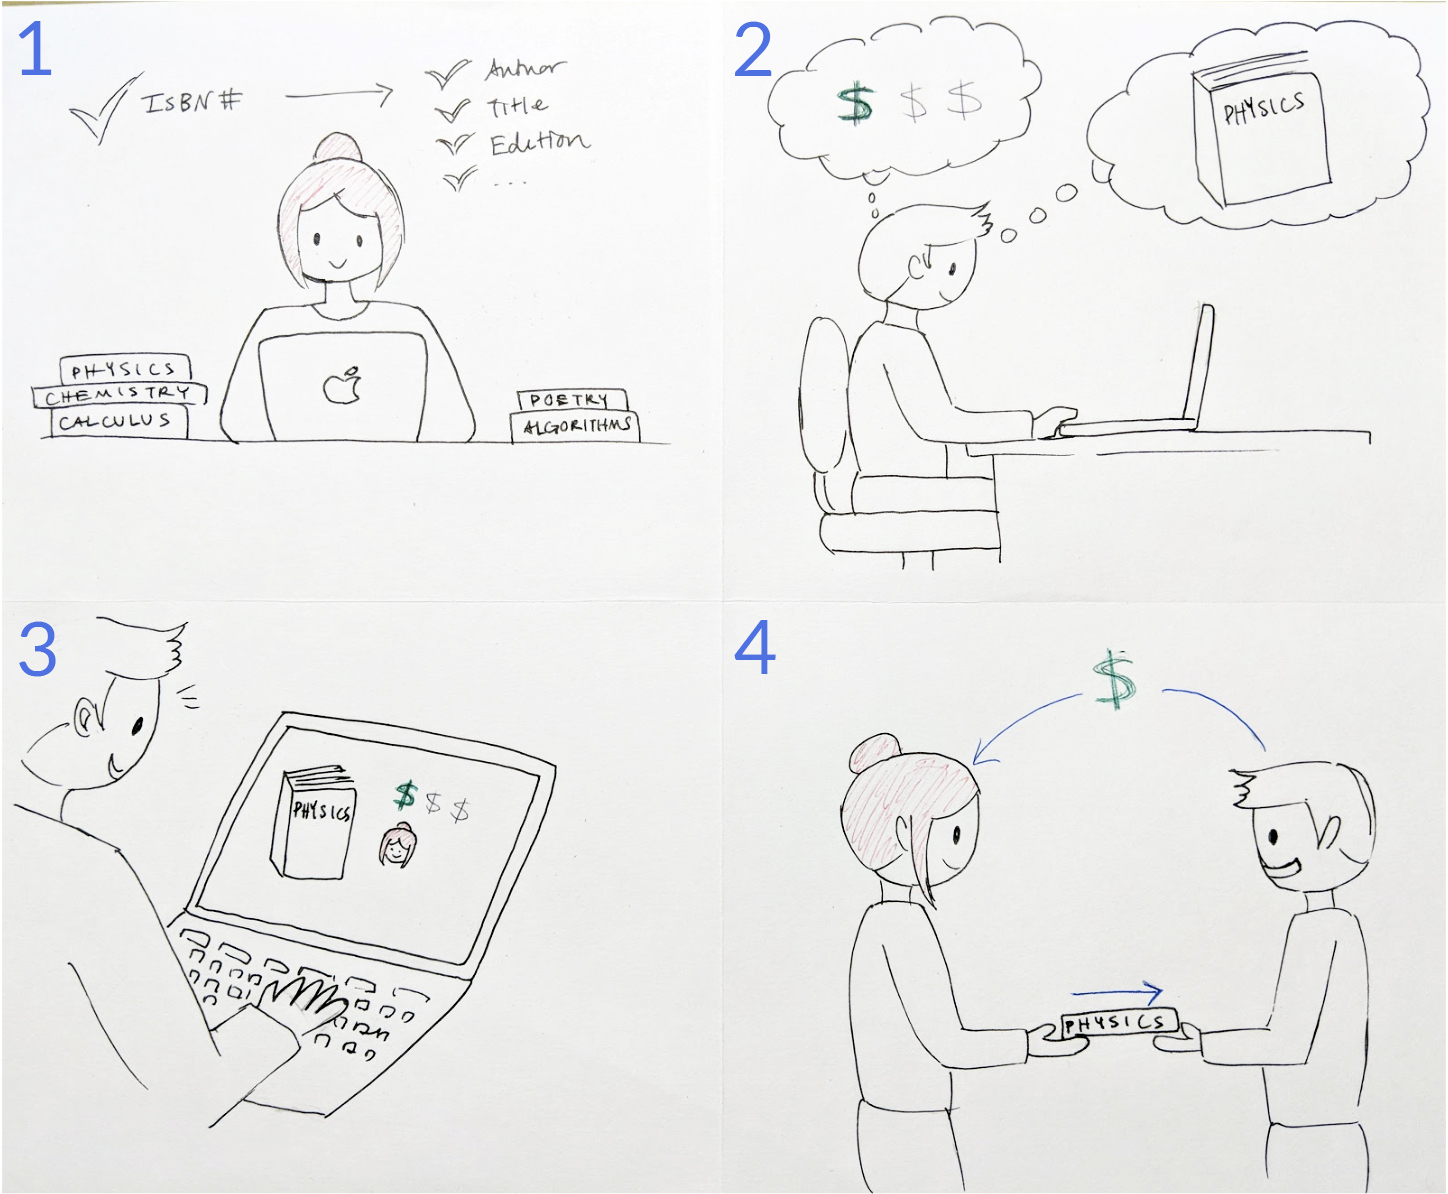 1
ISBN #
Author
Title
Edition
...
PHYSICS
CHEMISTRY
CALCULUS
POETRY
ALGORITHMS
2
$ $ $
PHYSICS
3
PHYSICS
$ $ $
4
$
PHYSICS